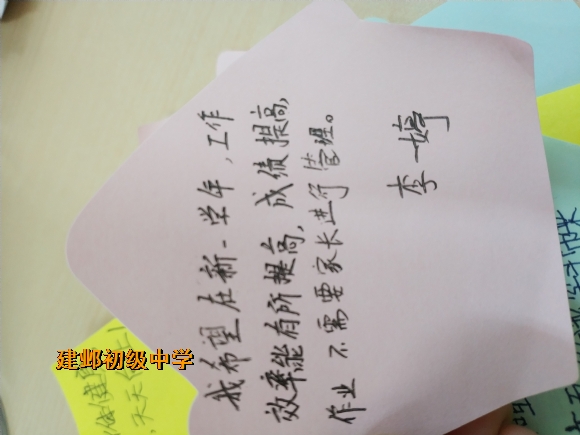 我希望在新一学年,工作
效率能有所提高,成绩提高,
作业不需要家长进行管理。
李一婷
建邺初级中学
天天